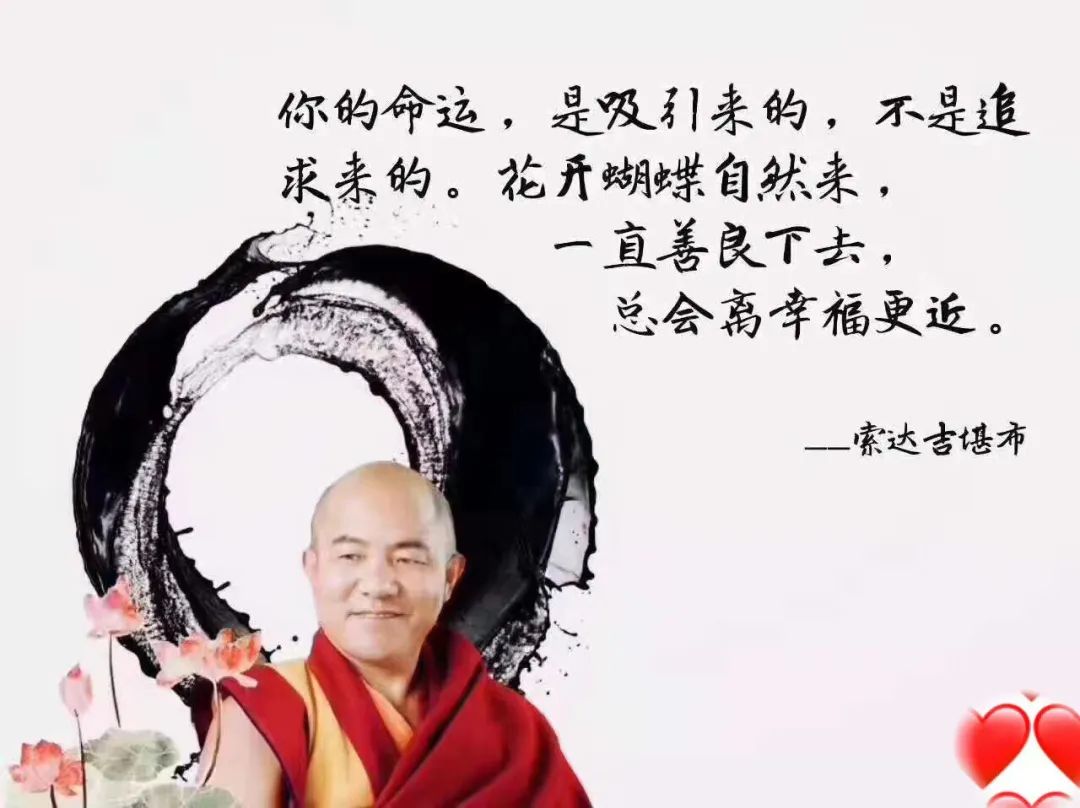 你的命运，是吸引来的，不是追
求来的。花开蝴蝶自然来，
一直善良下去，
总会离幸福更近。
——索达吉堪布